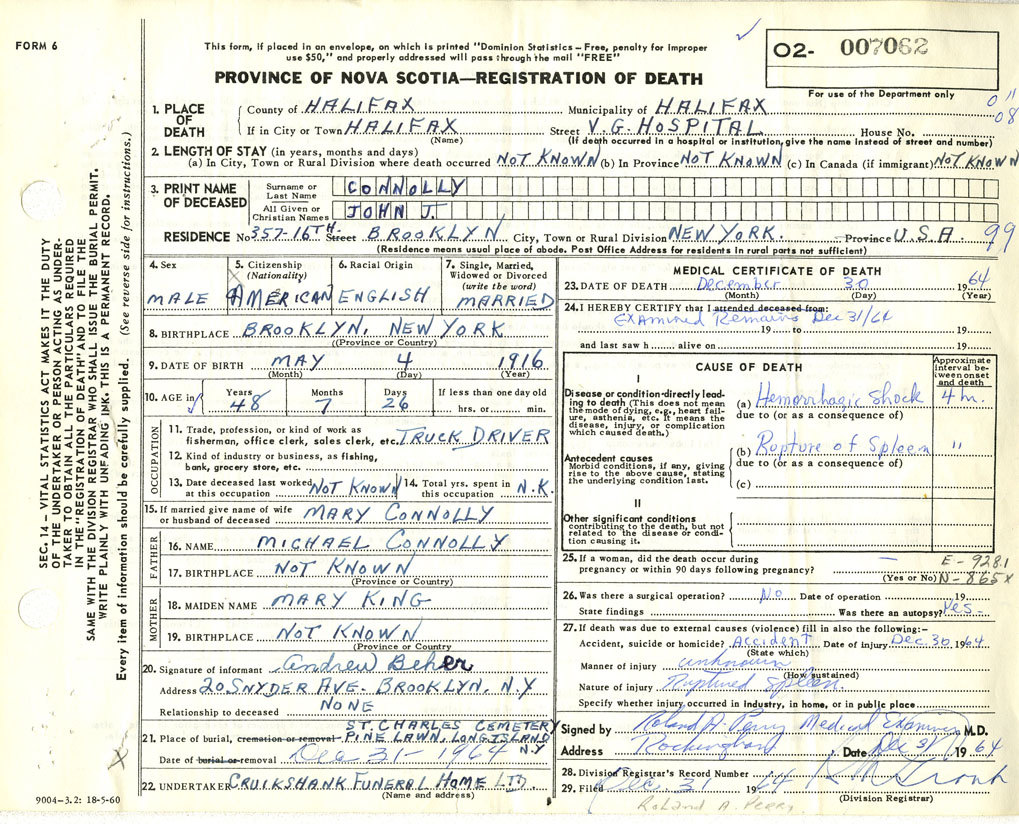 FORM 6
This form, if placed in an envelope, on which is printed "Dominion Statistics – Free, penalty for improper
use $50," and properly addressed will pass through the mail "FREE"
02- 007062
For use of the Department only
PROVINCE OF NOVA SCOTIA—REGISTRATION OF DEATH
011
08
1. PLACE OF DEATH
County of HALIFAX Municipality of HALIFAX
If in City or Town HALIFAX Street V.G. HOSPITAL House No.
(Name) (If death occurred in a hospital or institution, give the name instead of street and number)
2. LENGTH OF STAY (in years, months and days)
(a) In City, Town or Rural Division where death occurred NOT KNOWN (b) In Province NOT KNOWN (c) In Canada (if immigrant) NOT KNOWN
3. PRINT NAME OF DECEASED
Surname or Last Name CONNOLLY
All Given or Christian Names JOHN J.
RESIDENCE No 357-16TH Street BROOKLYN City, Town or Rural Division NEW YORK. Province U.S.A. 99
(Residence means usual place of abode. Post Office Address for residents in rural parts not sufficient)
4. Sex MALE
5. Citizenship (Nationality) AMERICAN
6. Racial Origin ENGLISH
7. Single, Married, Widowed or Divorced (write the word) MARRIED
8. BIRTHPLACE BROOKLYN, NEW YORK
(Province or Country)
9. DATE OF BIRTH MAY 4 1916
(Month) (Day) (Year)
10. AGE in Years 48 Months 7 Days 26 If less than one day old hrs. or min.
OCCUPATION
11. Trade, profession, or kind of work as
fisherman, office clerk, sales clerk, etc. TRUCK DRIVER
12. Kind of industry or business, as fishing,
bank, grocery store, etc.
13. Date deceased last worked at this occupation NOT KNOWN 14. Total yrs. spent in this occupation N.K.
15. If married give name of wife or husband of deceased MARY CONNOLLY
FATHER
16. NAME MICHAEL CONNOLLY
17. BIRTHPLACE NOT KNOWN
(Province or Country)
MOTHER
18. MAIDEN NAME MARY KING
19. BIRTHPLACE NOT KNOWN
(Province or Country)
20. Signature of informant Andrew Beher
Address 20 SNYDER AVE. BROOKLYN, N.Y
Relationship to deceased NONE
21. Place of burial, cremation or removal ST. CHARLES CEMETERY
PINE LAWN, LONG ISLAND N.Y
Date of burial or removal Dec 31 - 1964
22. UNDERTAKER CRUIKSHANK FUNERAL HOME LTD.
(Name and address)
9004-3.2: 18-5-60
MEDICAL CERTIFICATE OF DEATH
23. DATE OF DEATH December 30 1964
(Month) (Day) (Year)
24. I HEREBY CERTIFY that I attended deceased from:
Examined Remains Dec 31/64
19 to 19
and last saw h alive on 19
CAUSE OF DEATH
Approximate interval between onset and death
I
Disease or condition directly leading to death (This does not mean the mode of dying, e.g., heart failure, asthenia, etc. It means the disease, injury, or complication which caused death.)
(a) Hemorrhagic Shock 4 hr.
due to (or as a consequence of)
Antecedent causes
Morbid conditions, if any, giving rise to the above cause, stating the underlying condition last.
(b) Rupture of Spleen "
due to (or as a consequence of)
(c)
II
Other significant conditions
contributing to the death, but not related to the disease or condition causing it.
25. If a woman, did the death occur during
pregnancy or within 90 days following pregnancy? —
(Yes or No)
E-928.1
N-865x
26. Was there a surgical operation? No Date of operation 19
State findings Was there an autopsy? Yes -
27. If death was due to external causes (violence) fill in also the following:-
Accident, suicide or homicide? Accident Date of injury Dec 30 1964
(State which)
Manner of injury unknown
(How sustained)
Nature of injury Ruptured Spleen.
Specify whether injury occurred in industry, in home, or in public place
Signed by Roland A. Perry Medical Examiner M.D.
Address Rockingham Date Dec 31 1964
28. Division Registrar's Record Number
29. Filed Dec. 31 1964
(Division Registrar)
Roland A. Perry
SEC. 14 – VITAL STATISTICS ACT MAKES IT THE DUTY
OF THE UNDERTAKER OR PERSON ACTING AS UNDER-
TAKER TO OBTAIN ALL THE PARTICULARS REQUIRED
IN THE "REGISTRATION OF DEATH" AND TO FILE THE
SAME WITH THE DIVISION REGISTRAR WHO SHALL ISSUE THE BURIAL PERMIT.
WRITE PLAINLY WITH UNFADING INK. THIS IS A PERMANENT RECORD.
Every item of information should be carefully supplied. (See reverse side for instructions.)